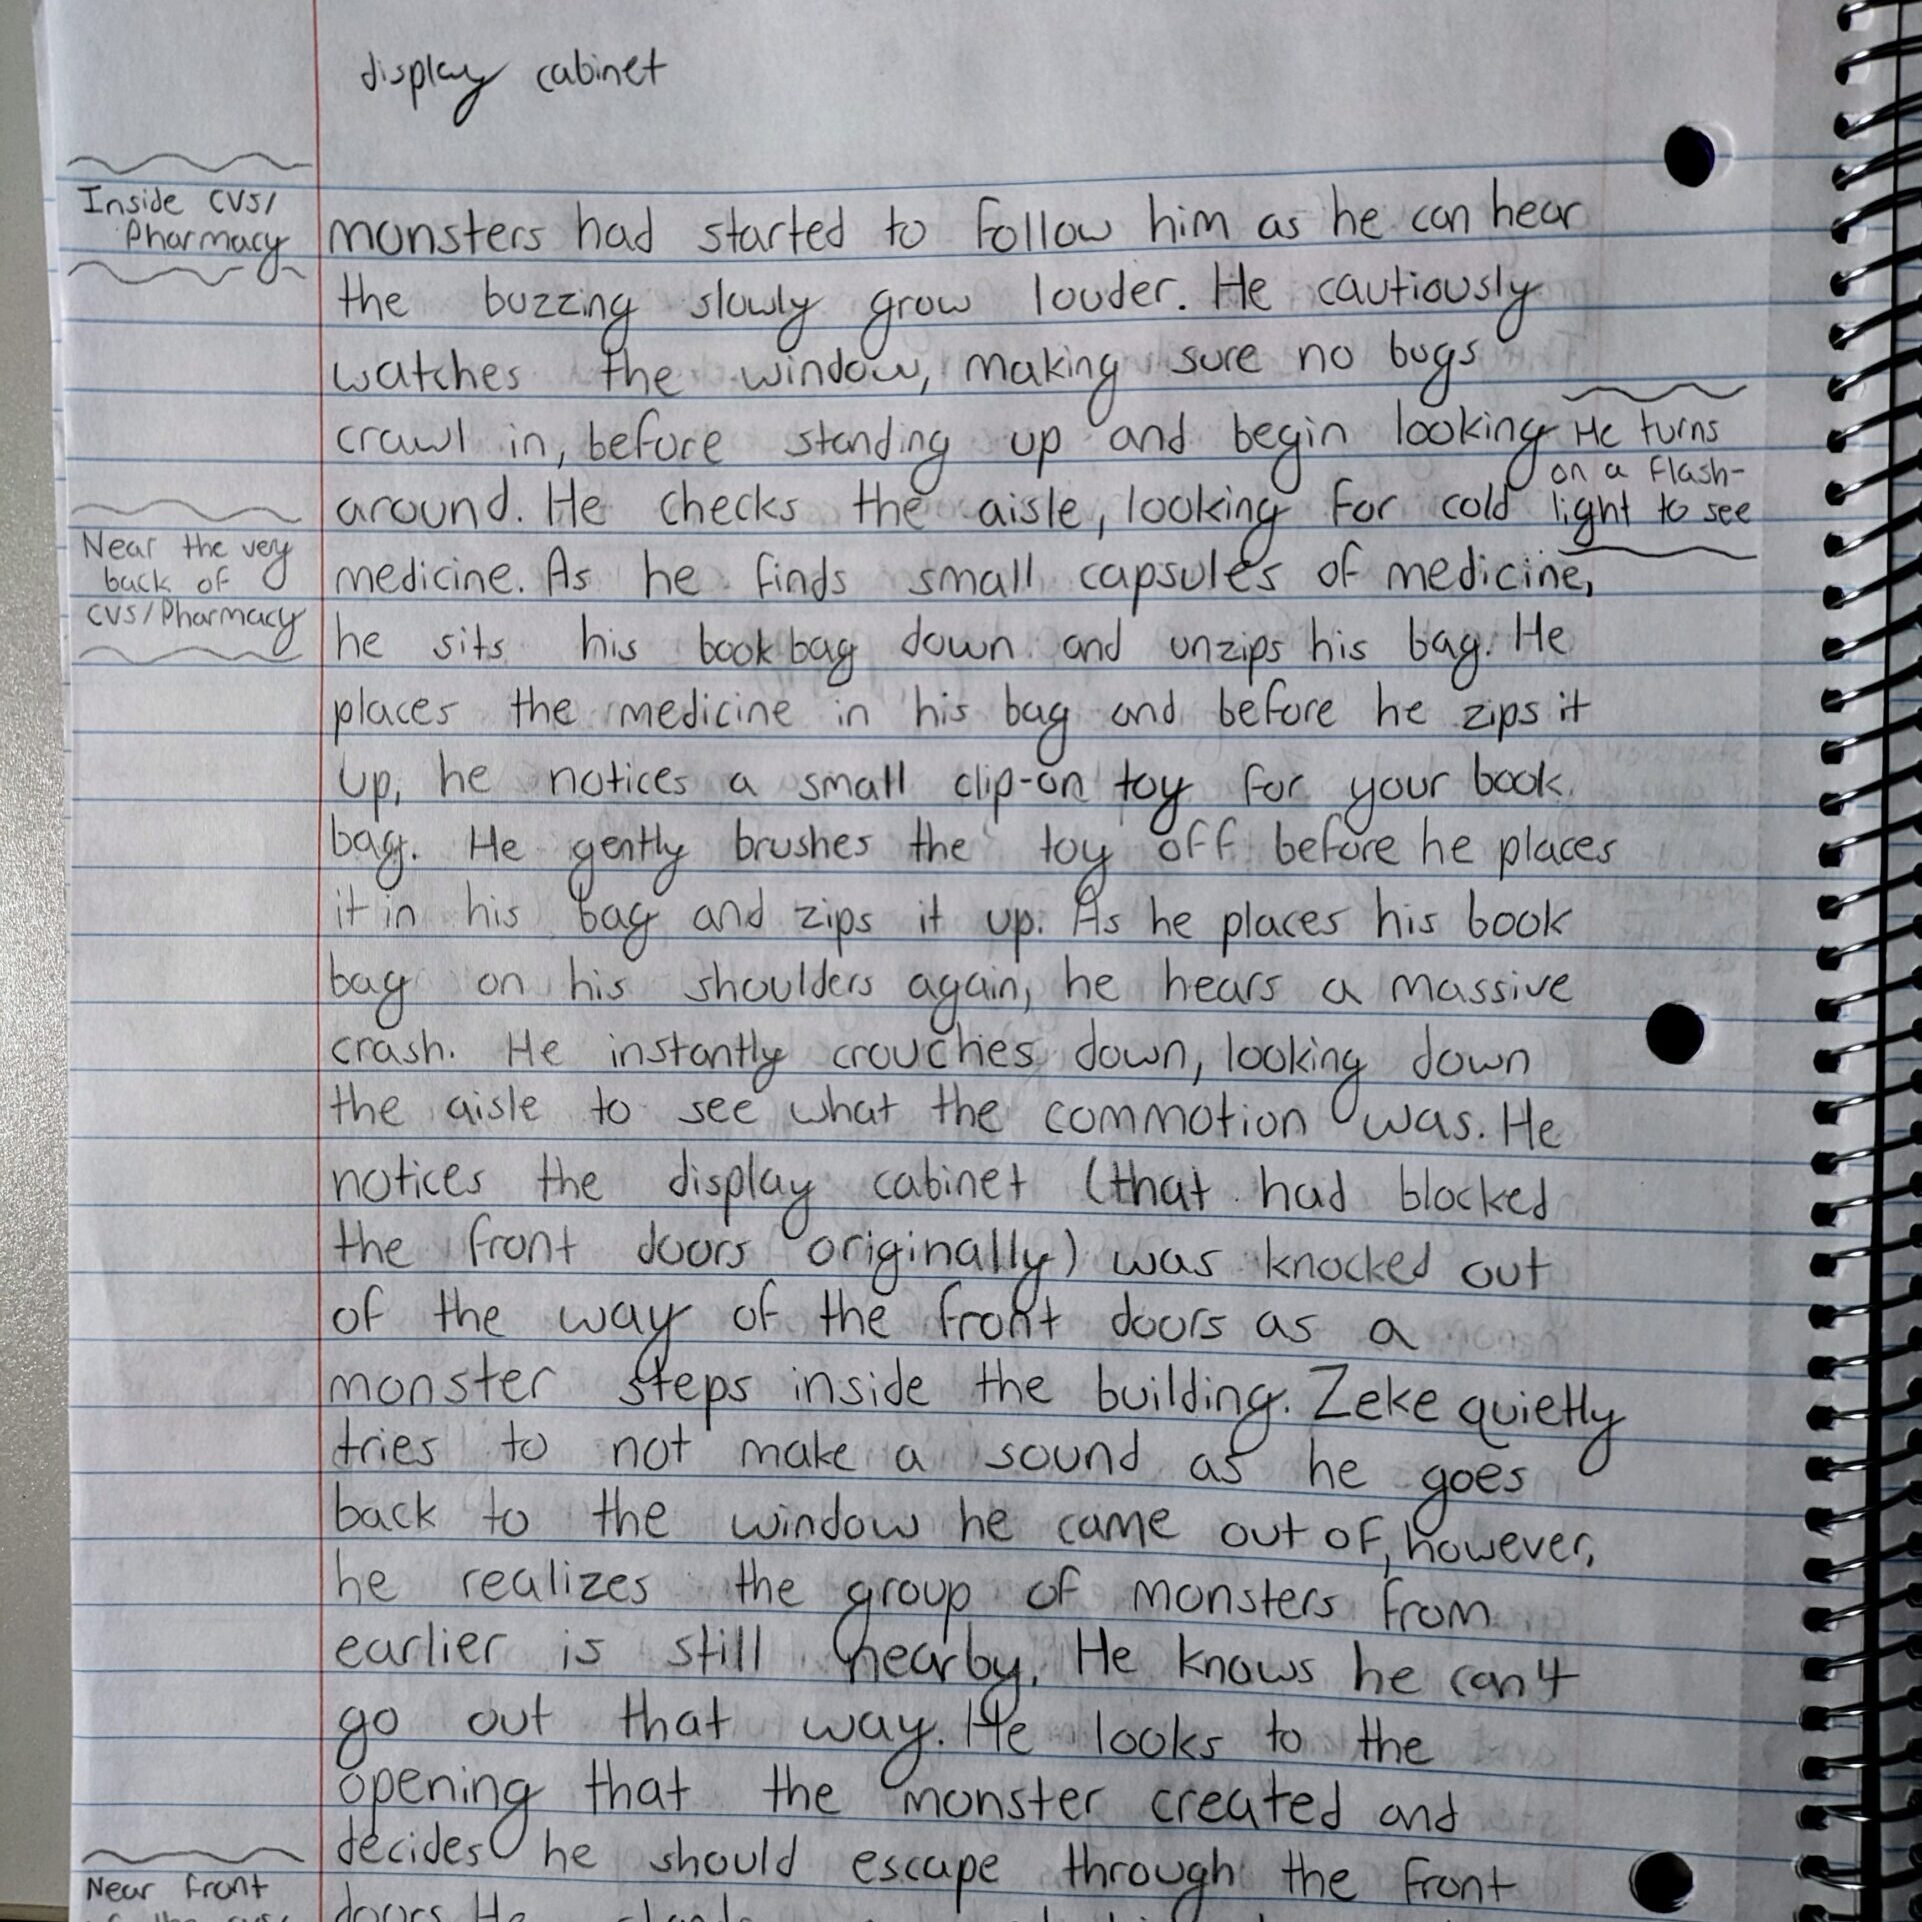 display cabinet
Inside CVS/
Pharmacy
monsters had started to follow him as he can hear
the buzzing slowly grow louder. He cautiously
watches the window, making sure no bugs
crawl in, before standing up and begin looking
around. He checks the aisle, looking for cold
He turns
on a flash-
light to see
Near the very
back of
CVS/Pharmacy
medicine. As he finds small capsules of medicine,
he sits his bookbag down and unzips his bag. He
places the medicine in his bag and before he zips it
up, he notices a small clip-on toy for your book
bag. He gently brushes the toy off before he places
it in his bag and zips it up. As he places his book
bag on his shoulders again, he hears a massive
crash. He instantly crouches down, looking down
the aisle to see what the commotion was. He
notices the display cabinet (that had blocked
the front doors originally) was knocked out
of the way of the front doors as a
monster steps inside the building. Zeke quietly
tries to not make a sound as he goes
back to the window he came out of, however,
he realizes the group of monsters from
earlier is still nearby. He knows he can't
go out that way. He looks to the
opening that the monster created and
decides he should escape through the front
Near front
doors. He